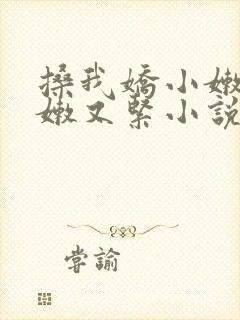 搡我嬌小嫩
嫩又緊小說
嘗諭